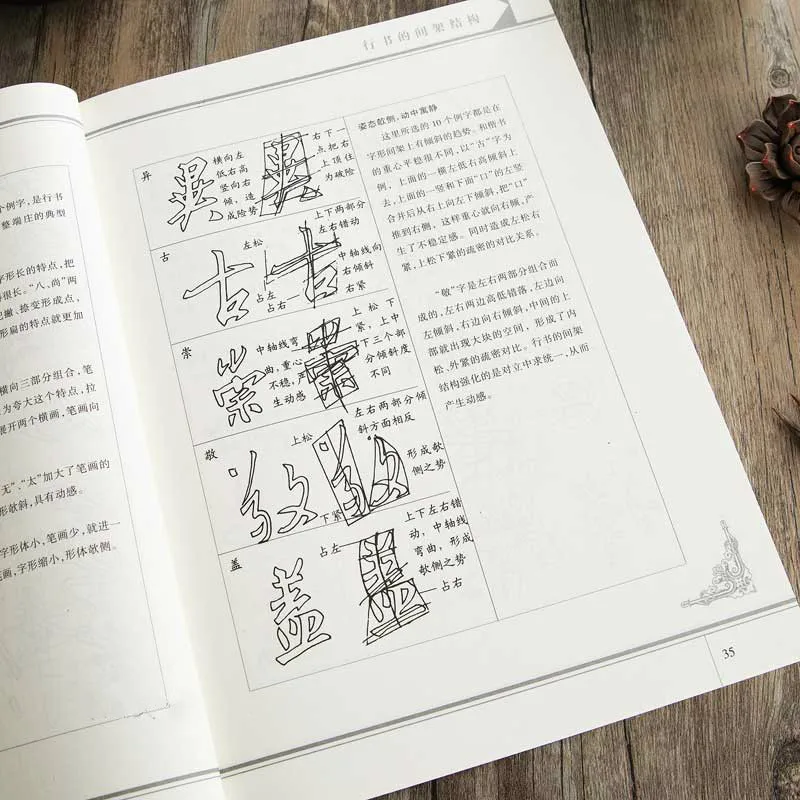 个例字,是行书
整端庄的典型
字形长的特点,把
得很长。“八、尚”两
把撇、捺变形成点、
形扁的特点就更加
横向三部分组合,笔
为夸大这个特点,拉
展开两个横画,笔画向
无”、“太”加大了笔画的
形欹斜,具有动感。
字形体小,笔画少,就进一
笔画,字形缩小,形体欹侧。
行书的间架结构
异
横向左
低右高
竖向右
倾,造
成险势
右下一
点把右
上顶住
为破险
古
左松
占左
上下两部分
左右错动
中轴线向
右倾斜
占右
右紧
崇
中轴线弯
曲,重心
不稳,产
生动感
上松下
紧,上中
下三个部
分倾斜度
不同
敬
上松
下紧
左右两部分倾
斜方面相反
形成欹
侧之势
盖
占左
上下左右错
动,中轴线
弯曲,形成
欹侧之势
占右
姿态欹侧,动中寓静
这里所选的10个例字都是在
字形间架上有倾斜的趋势。和楷书
的重心平稳很不同,以“古”字为
例,上面的一横左低右高倾斜上
去,上面的一竖和下面“口”的左竖
合并后从右上向左下倾斜,把“口”
推到右侧,这样重心就向右倾,产
生了不稳定感。同时造成左松右
紧,上松下紧的疏密的对比关系。
“敬”字是左右两部分组合而
成的,左右两边高低错落,左边向
左倾斜,右边向右倾斜,中间的上
部就出现大块的空间,形成了内
松、外紧的疏密对比。行书的间架
结构强化的是对立中求统一,从而
产生动感。
35